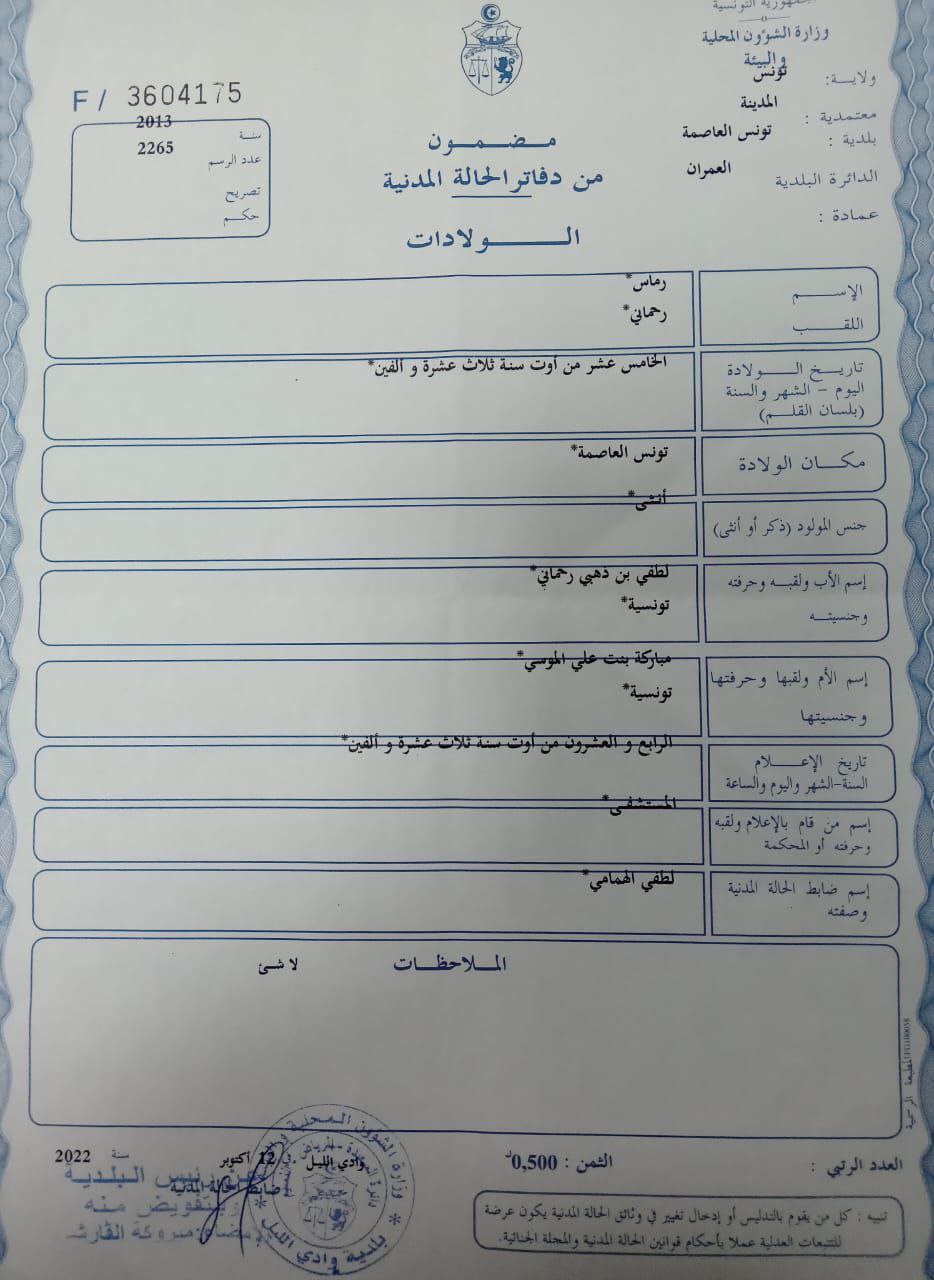 الجمهورية التونسية
وزارة الشؤون المحلية
والبيئة
ولاية: تونس
معتمدية : المدينة
بلدية : تونس العاصمة
الدائرة البلدية العمران
عمادة :
F / 3604175
سنة 2013
عدد الرسم 2265
تصريح
حكم
مضمون
من دفاتر الحالة المدنية
الولادات
الإسم رماس*
اللقب رحماني*
تاريخ الولادة الخامس عشر من أوت سنة ثلاث عشرة و ألفين*
اليوم - الشهر والسنة
(بلسان القلم)
مكان الولادة تونس العاصمة*
جنس المولود (ذكر أو أنثى) أنثى*
إسم الأب ولقبه وحرفته لطفي بن ذهبي رحماني*
وجنسيته تونسية*
إسم الأم ولقبها وحرفتها مباركة بنت علي الموسي*
وجنسيتها تونسية*
تاريخ الإعلام الرابع و العشرون من أوت سنة ثلاث عشرة و ألفين*
السنة-الشهر واليوم والساعة
إسم من قام بالإعلام ولقبه المستشفى*
وحرفته أو المحكمة
إسم ضابط الحالة المدنية لطفي الهمامي*
وصفته
الملاحظات لا شئ
المطبعة الرسمية
العدد الرتبي : الثمن : 0,500د
وادي الليل 12 أكتوبر سنة 2022
ضابط الحالة المدنية
عن رئيس البلدية
وبتفويض منه
وزارة الشؤون المحلية
بلدية وادي الليل
تنبيه : كل من يقوم بالتدليس أو إدخال تغيير في وثائق الحالة المدنية يكون عرضة
للتتبعات العدلية عملا بأحكام قوانين الحالة المدنية والمجلة الجنائية.